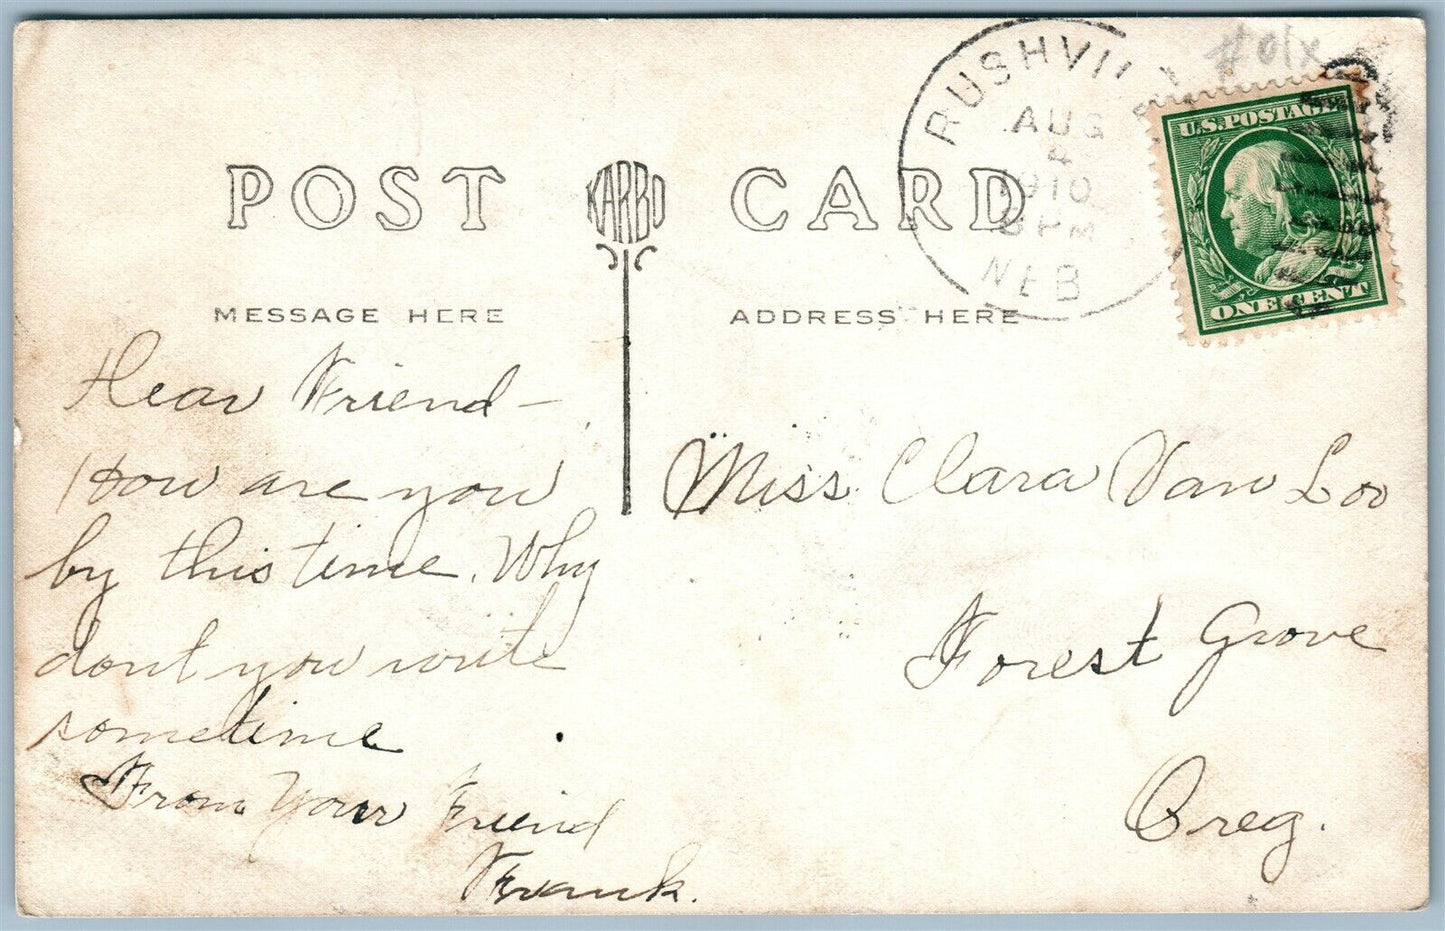 POST KARBO CARD
MESSAGE HERE
ADDRESS HERE
RUSHVILL
AUG
4
1910
8 PM
NEB
U.S. POSTAGE
ONE CENT
Dear Friend -
How are you
by this time. Why
dont you write
sometime
From Your Friend
Frank.
Miss Clara Van Loo
Forest Grove
Oreg.